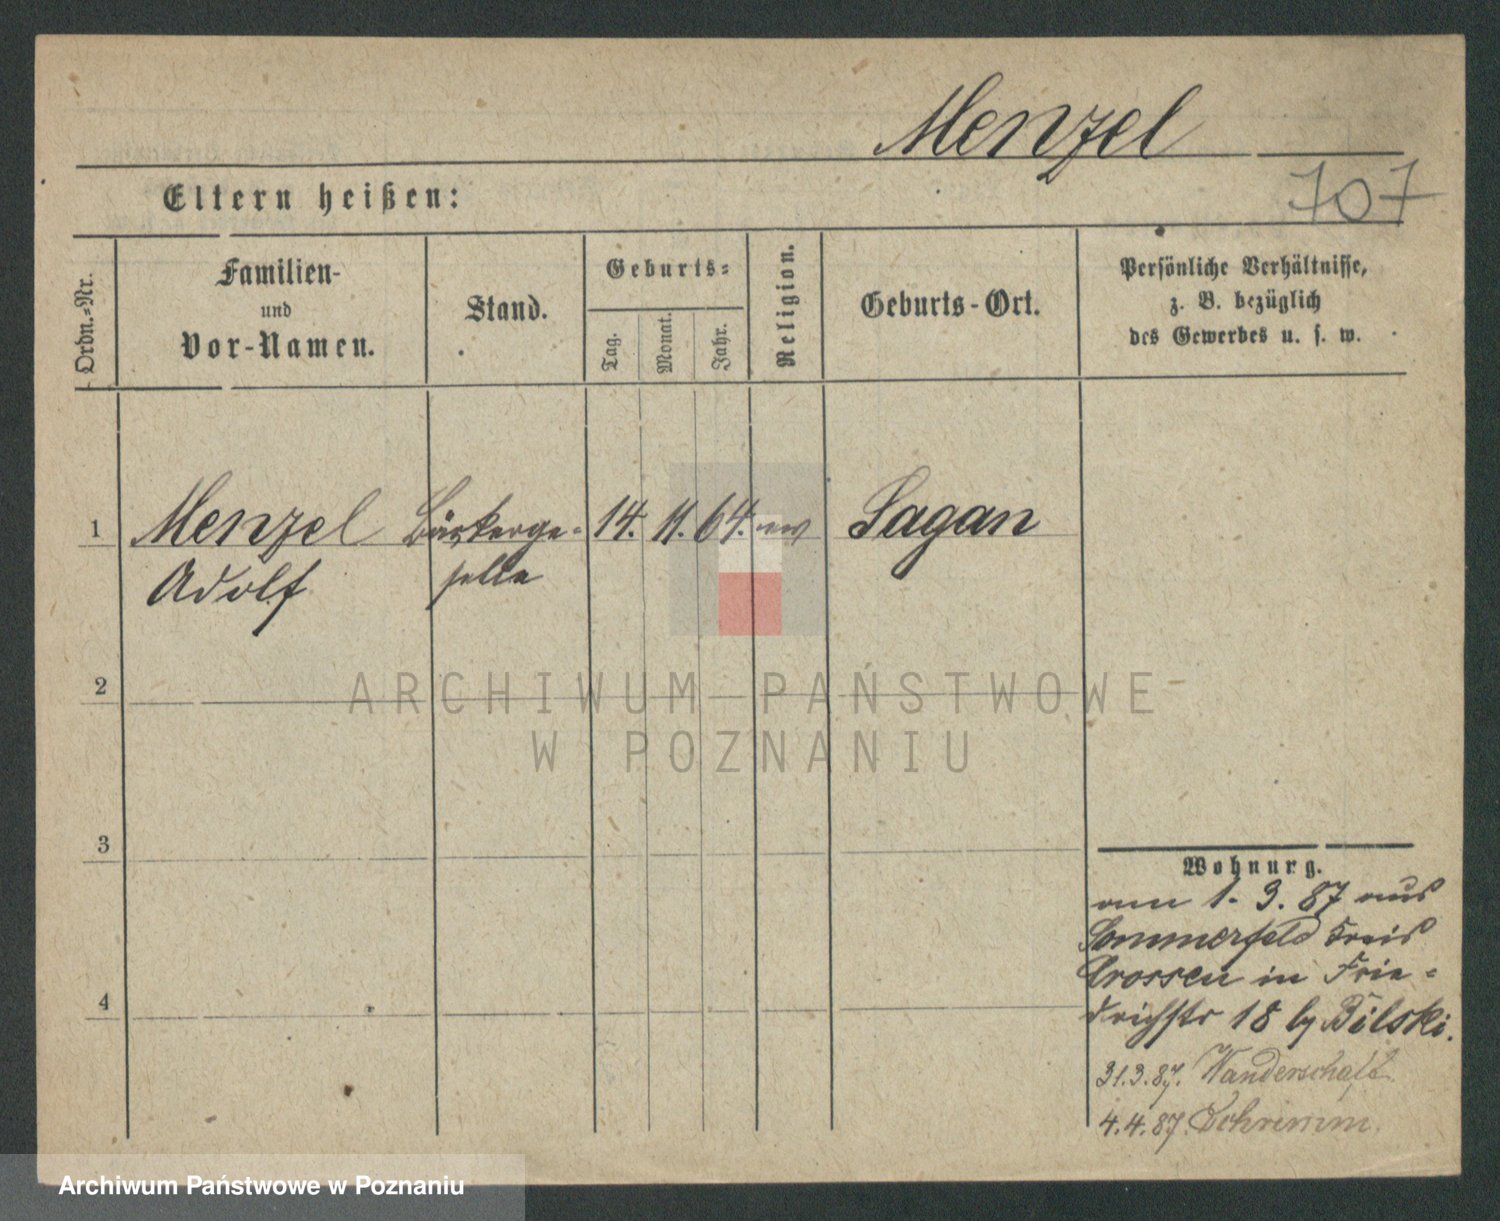 Menzel
707
Eltern heißen:
Ordn.-Nr.
Familien-
und
Vor-Namen.
Stand.
Geburts-
Tag.
Monat.
Jahr.
Religion.
Geburts-Ort.
Persönliche Verhältnisse,
z. B. bezüglich
des Gewerbes u. s. w.
1
Menzel Bäckerge- 14. 11. 64. ev Sagan
Adolf selle
2
ARCHIWUM PAŃSTWOWE
W POZNANIU
3
Wohnung.
am 1. 3. 87 aus
Sommerfeld Kreis
Crossen in Frie-
4
drichstr 18 by Bilski.
31.3.87. Wanderschaft
4.4.87.
Archiwum Państwowe w Poznaniu